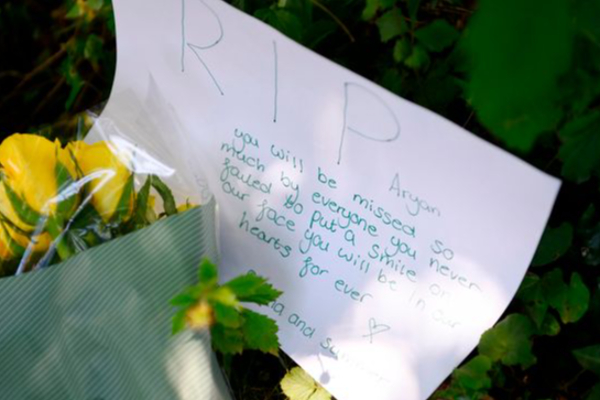 RIP
Aryan
you will be missed so
much by everyone you never
failed to put a smile on
our face you will be in our
hearts for ever
and